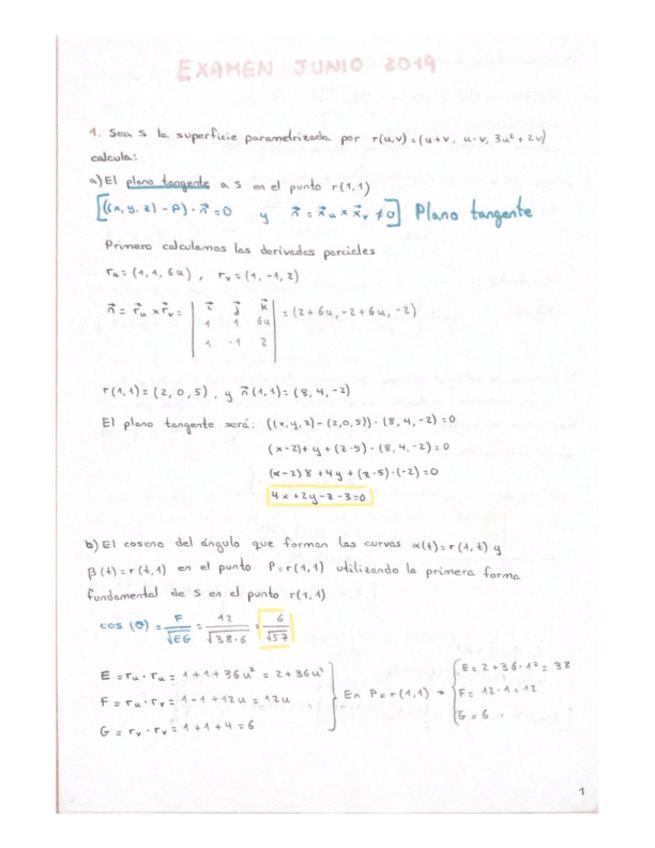 EXAMEN JUNIO 2019
1. Sea S la superficie parametrizada por r(u,v)=(u+v, u-v, 3u²+2v)
calcula:
a) El plano tangente a S en el punto r(1,1)
[((x,y,z)-P)·n⃗=0 y n⃗=x⃗ᵤ×x⃗ᵥ≠0] Plano tangente
Primero calculamos las derivadas parciales
rᵤ=(1,1,6u), rᵥ=(1,-1,2)
n⃗=r⃗ᵤ×r⃗ᵥ= | i⃗ j⃗ k⃗ | =(2+6u,-2+6u,-2)
1 1 6u
1 -1 2
r(1,1)=(2,0,5), y n⃗(1,1)=(8,4,-2)
El plano tangente será: ((x,y,z)-(2,0,5))·(8,4,-2)=0
(x-2)+y+(z-5)·(8,4,-2)=0
(x-2)8+4y+(z-5)·(-2)=0
4x+2y-z-3=0
b) El coseno del ángulo que forman las curvas α(t)=r(1,t) y
β(t)=r(t,1) en el punto P=r(1,1) utilizando la primera forma
fundamental de S en el punto r(1,1)
cos(θ)=F/√EG=12/√38·6=6/√57
E=rᵤ·rᵤ=1+1+36u²=2+36u²
F=rᵤ·rᵥ=1-1+12u=12u
G=rᵥ·rᵥ=1+1+4=6
En P=r(1,1) →
E=2+36·1²=38
F=12·1=12
G=6.
1